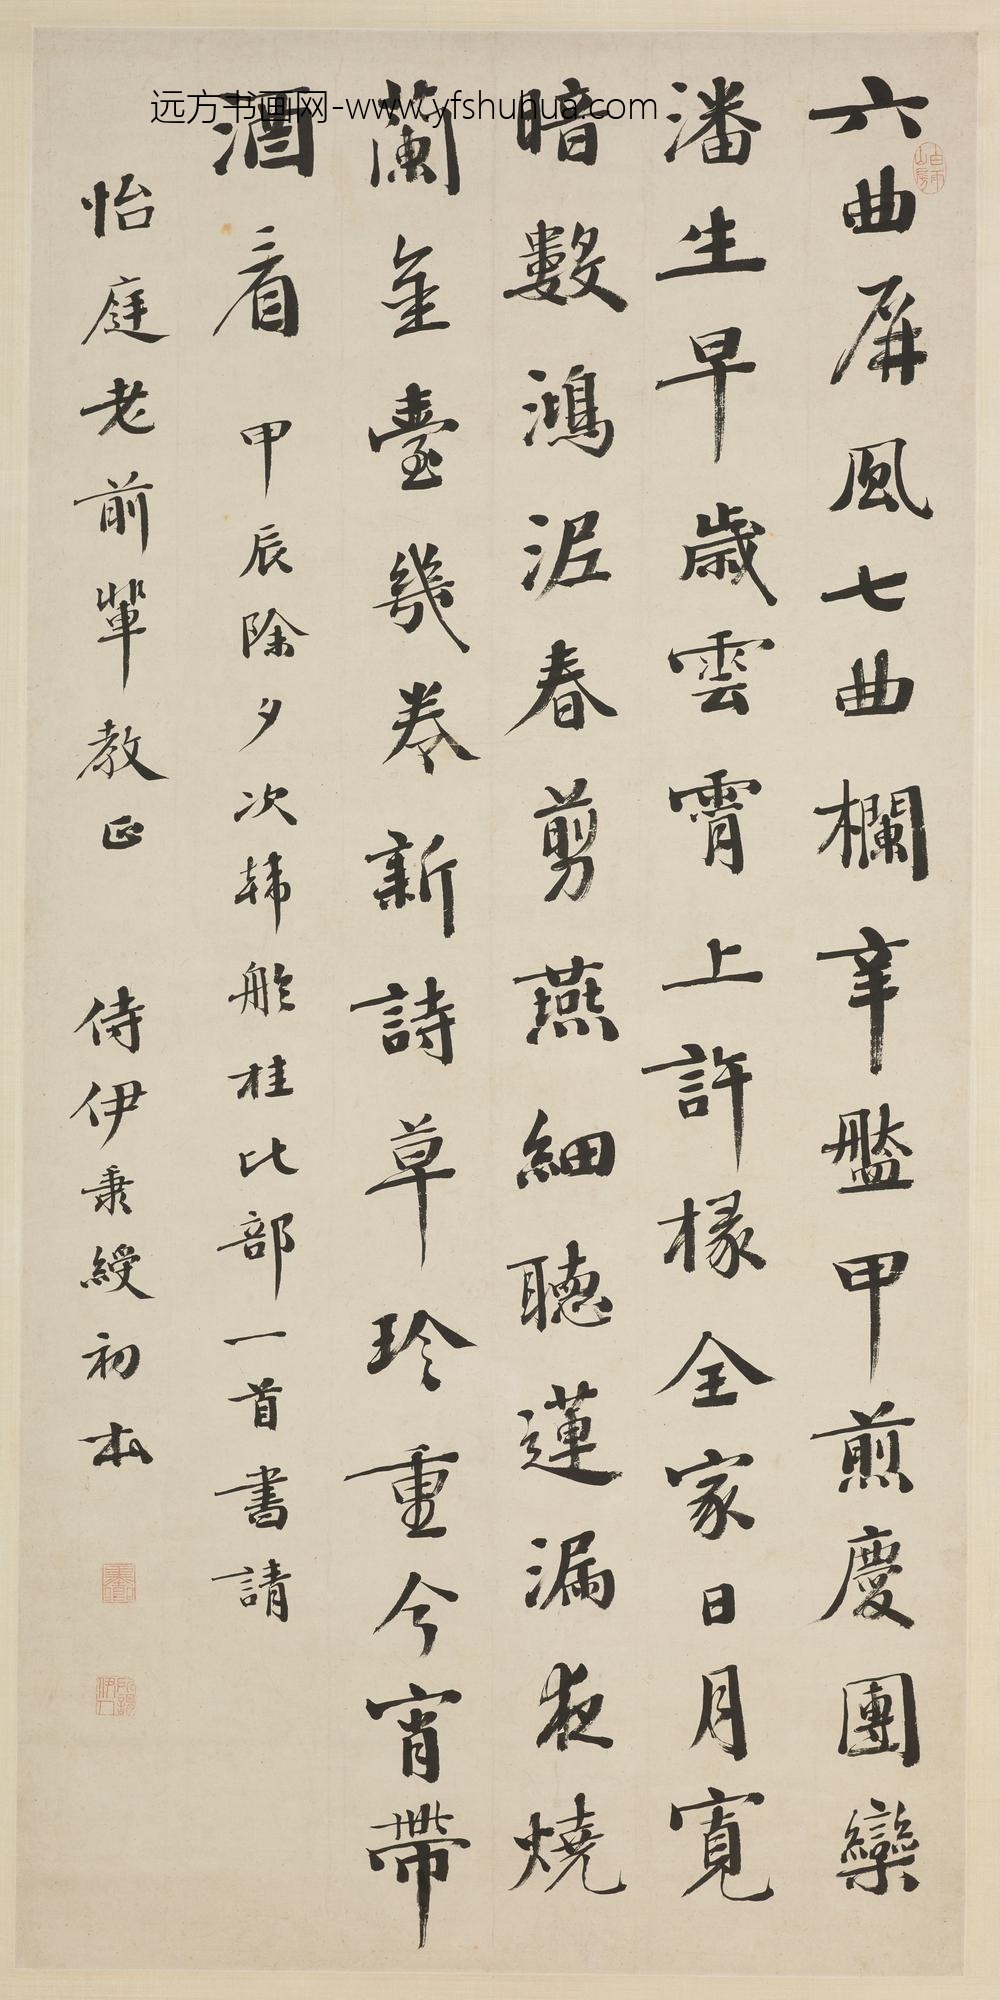 远方书画网-www.yfshuhua.com
六曲屏風七曲欄辛盤甲煎慶團欒
潘生早歲雲霄上許椽全家日月寬
暗數鴻泥春剪燕細聽蓮漏夜燒
蘭金臺幾卷新詩草珍重今宵帶
酒看 甲辰除夕次韩舲桂比部一首書請
怡庭老前輩教正 侍伊秉綬初本